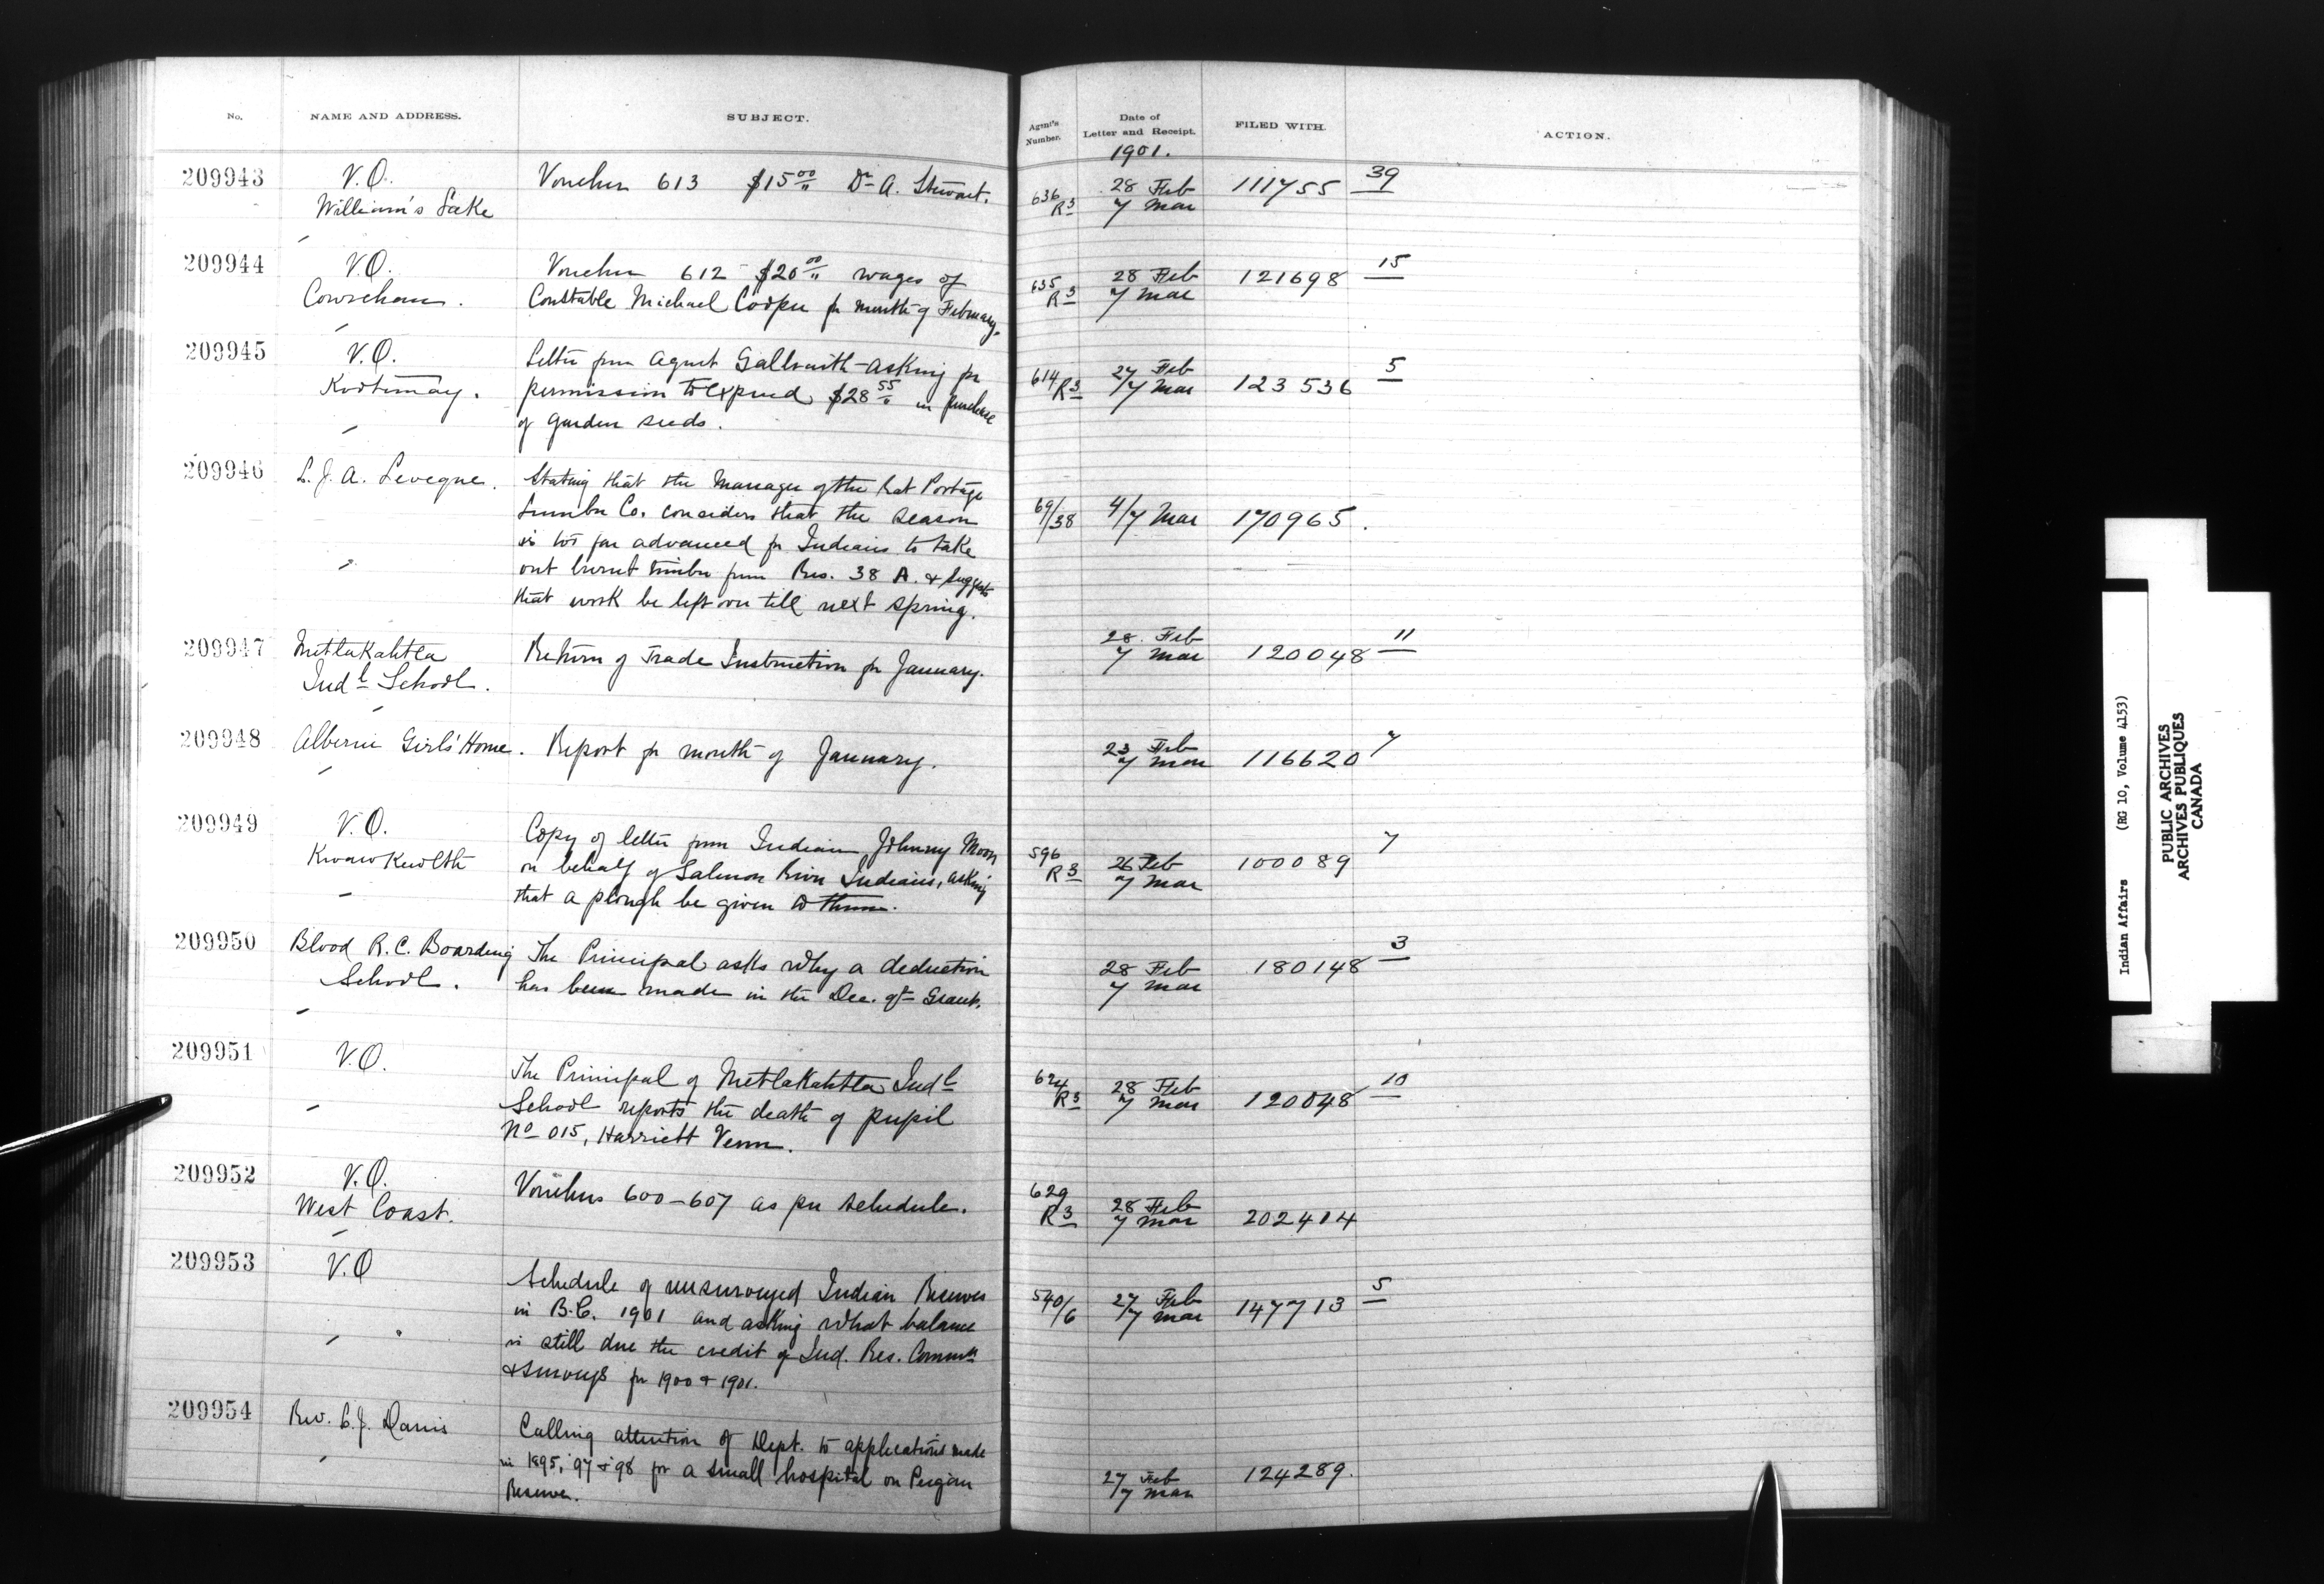 No. NAME AND ADDRESS. SUBJECT. Agent's Number. Date of Letter and Receipt. FILED WITH. ACTION.
1901.
209943 V.O. Voucher 613 $15.00 Dr A. Stewart. 636 28 Feb 111755 39
William's Lake R3 7 Mar
209944 V.O. Voucher 612 $20.00 wages of 635 28 Feb 121698 15
Cowichan. Constable Michael Cooper for month of February. R3 7 Mar
209945 V.O. Letter from Agent Galbraith asking for 614 R3 27 Feb 123536 5
Kootenay. permission to expend $28.55 in purchase 7 Mar
of garden seeds.
209946 L. J. A. Leveque. Stating that the Manager of the Rat Portage
Lumber Co. considers that the season 69/38 4/7 Mar 170965.
is too far advanced for Indians to take
out burnt timber from Res. 38 A. & suggests
that work be left over till next spring.
209947 Metlakahtla Return of Trade Instruction for January. 28 Feb 120048 11
Indl School. 7 Mar
209948 Alberni Girls' Home. Report for month of January. 23 Feb 116620 7
7 Mar
209949 V.O. Copy of letter from Indian Johnny Moon 596 26 Feb 100089 7
Kwawkewlth on behalf of Salmon River Indians, asking R3 7 Mar
that a plough be given to them.
209950 Blood R.C. Boarding The Principal asks why a deduction 28 Feb 180148 3
School. has been made in the Dec. qr Grant. 7 Mar
209951 V.O. The Principal of Metlakahtla Indl 624 28 Feb 120048 10
School reports the death of pupil R3 7 Mar
No 015, Harriett Venn.
209952 V.O. Vouchers 600-607 as per schedule. 629 28 Feb 202414
West Coast. R3 7 Mar
209953 V.O Schedule of unsurveyed Indian Reserves 540/6 27 Feb 147713 5
in B.C. 1901 and asking what balance 7 Mar
is still due the credit of Ind. Res. Commn
& Surveys for 1900 & 1901.
209954 Rev. C. J. Calling attention of Dept. to applications made
in 1895, 97 & 98 for a small hospital on Peigan 27 Feb 124289.
Reserve. 7 Mar
Indian Affairs (RG 10, Volume 4153)
PUBLIC ARCHIVES
ARCHIVES PUBLIQUES
CANADA